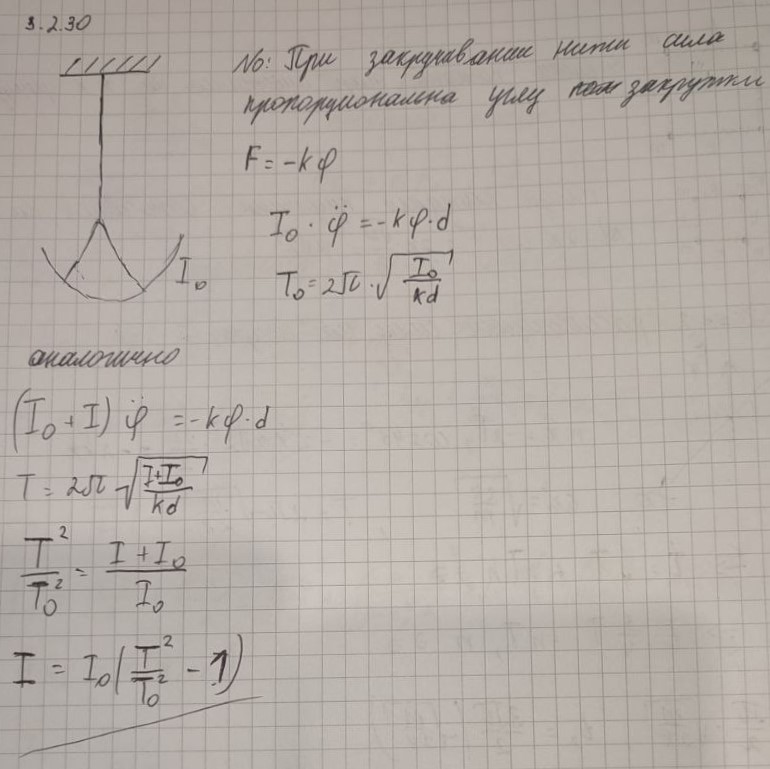 3.2.30
No: При закручивании нити сила
пропорциональна углу закрутки
F = -kφ
I₀ · φ̈ = -kφ·d
T₀ = 2π · √(I₀/kd)
I₀
аналогично
(I₀ + I) φ̈ = -kφ·d
T = 2π √(I+I₀/kd)
T²/T₀² = I + I₀/I₀
I = I₀(T²/T₀² - 1)